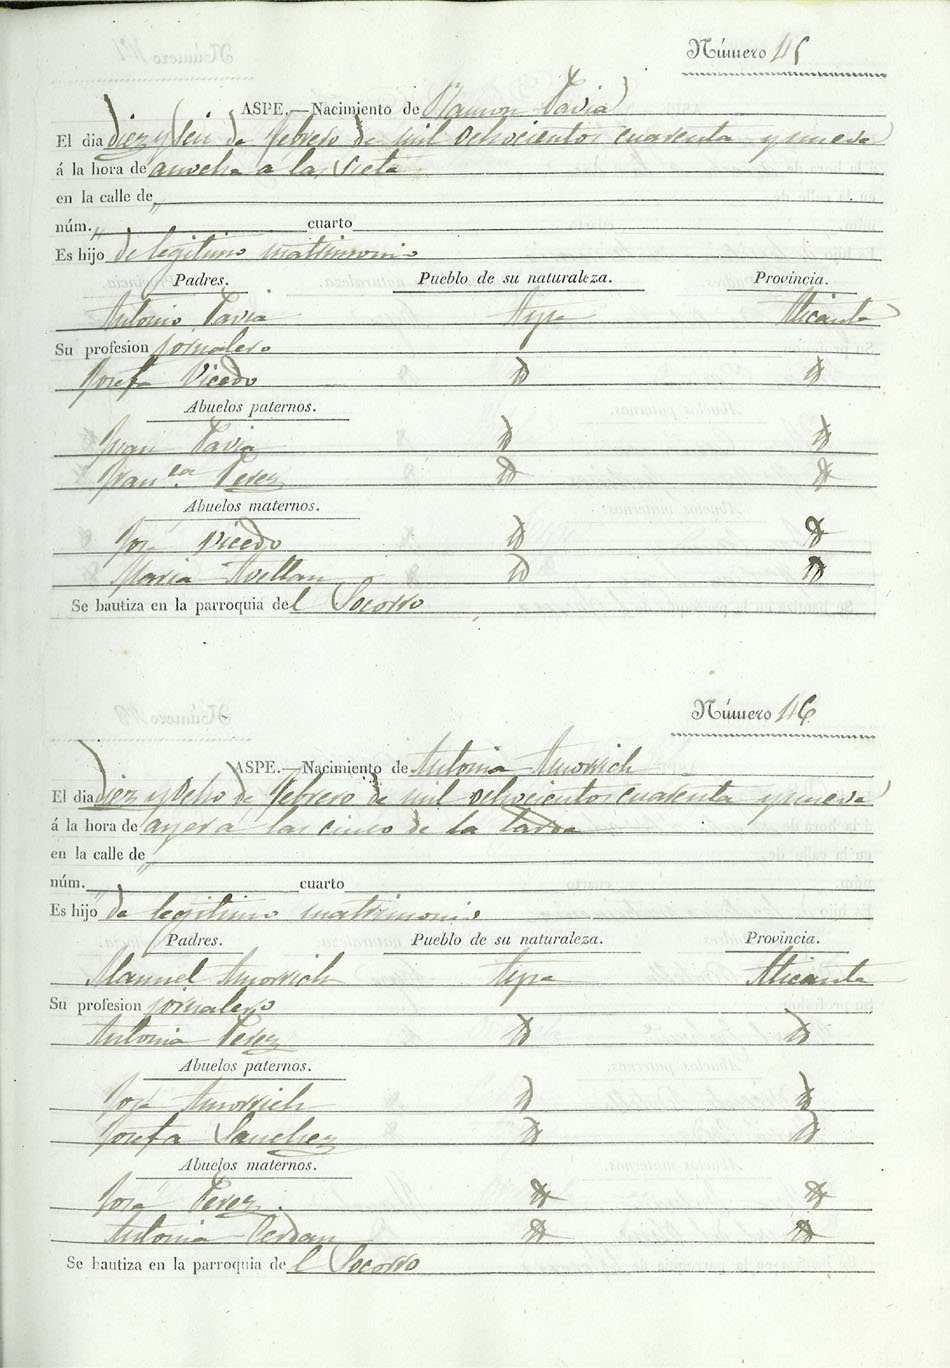 Número 45
ASPE.—Nacimiento de Ramon Pavia
El dia diez y seis de febrero de mil ochocientos cuarenta y nueve
á la hora de anoche a las siete
en la calle de "
núm. " cuarto
Es hijo de legitimo matrimonio
Padres. Pueblo de su naturaleza. Provincia.
Antonio Pavia Aspe Alicante
Su profesion jornalero
Josefa Vicedo
Abuelos paternos.
Juan Pavia
Fran.ca Perez
Abuelos maternos.
Jose Vicedo
Maria Avellan
Se bautiza en la parroquia del Socorro
Número 46
ASPE.—Nacimiento de Antonia Amorrich
El dia diez y ocho de febrero de mil ochocientos cuarenta y nueve
á la hora de ayer a las cinco de la tarde
en la calle de "
núm. " cuarto
Es hijo de legitimo matrimonio
Padres. Pueblo de su naturaleza. Provincia.
Manuel Amorrich Aspe Alicante
Su profesion jornalero
Antonia Perez
Abuelos paternos.
Jose Amorrich
Josefa Sanchez
Abuelos maternos.
Jose Perez
Antonia Cerdan
Se bautiza en la parroquia del Socorro